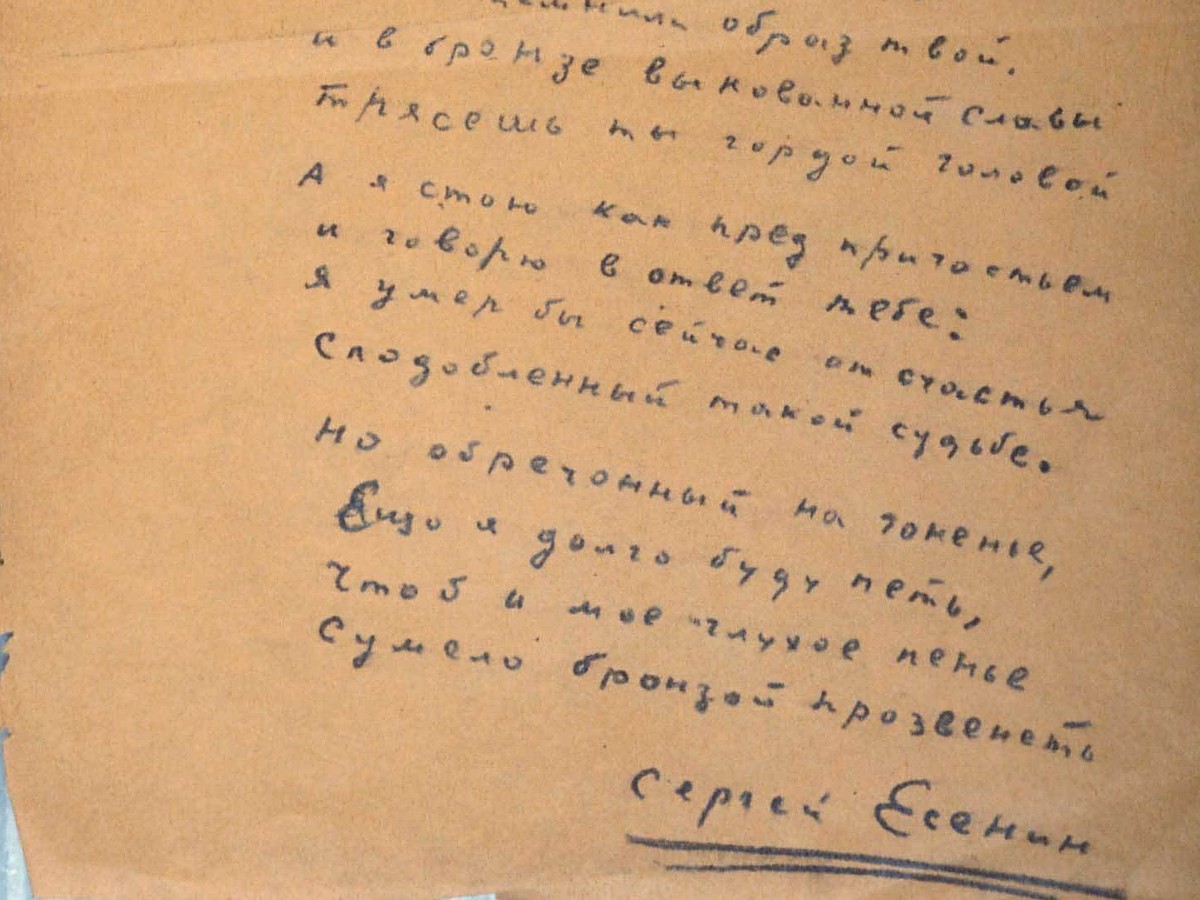 образ твой.
и в бронзе выкованной славы
Трясешь ты гордой головой
А я стою как пред причастьем
и говорю в ответ тебе:
Я умер бы сейчас от счастья
Сподобленный такой судьбе.
Но обречонный на гоненье,
Ещо я долго буду петь,
Чтоб и мое глухое пенье
Сумело бронзой прозвенеть
Сергей Есенин